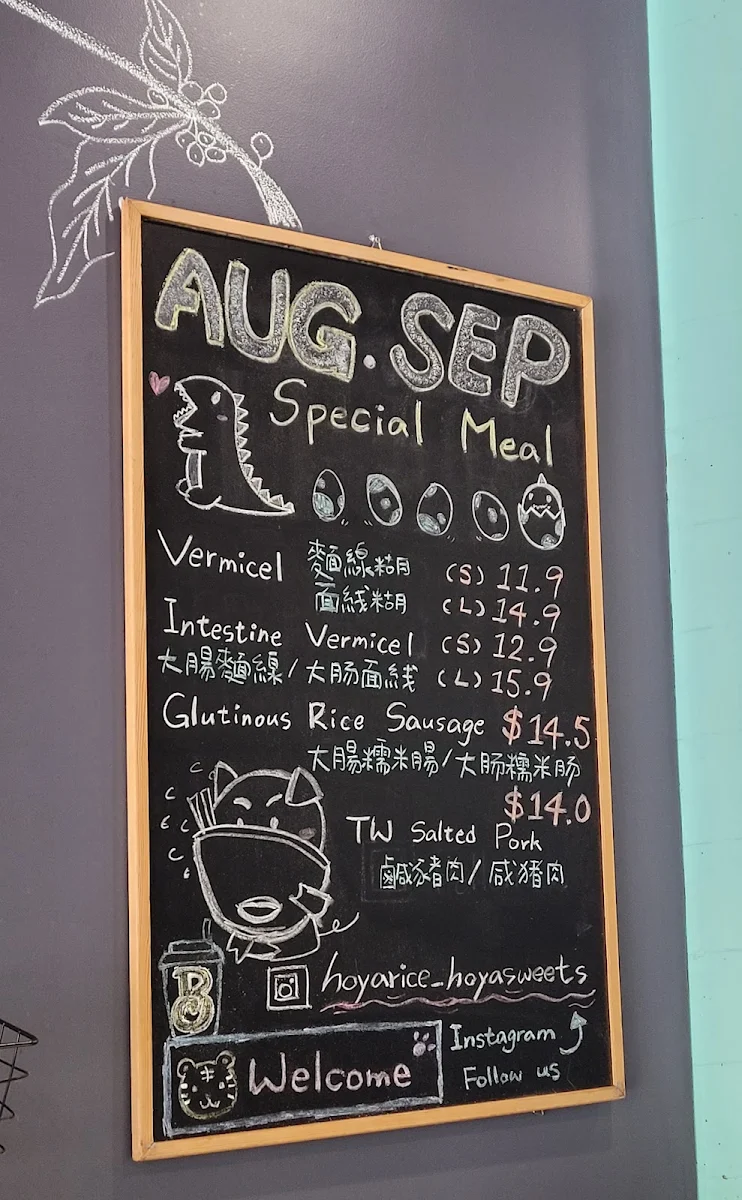 AUG.SEP
Special Meal
Vermicel 麵線糊 (S) 11.9
面线糊 (L) 14.9
Intestine Vermicel (S) 12.9
大腸麵線/大肠面线 (L) 15.9
Glutinous Rice Sausage $14.5
大腸糯米腸/大肠糯米肠
$14.0
TW Salted Pork
鹹豬肉/咸猪肉
B
hoyarice_hoyasweets
Welcome
Instagram
Follow us